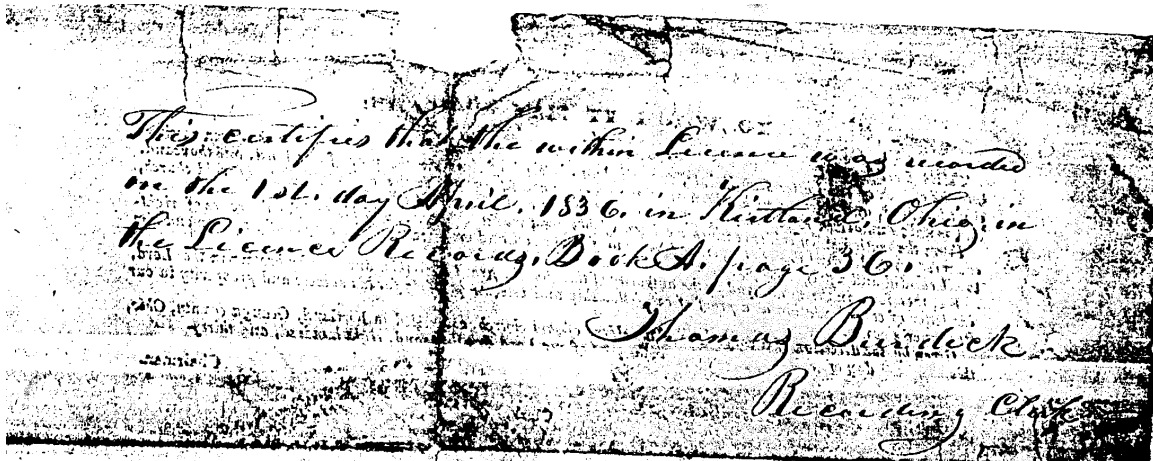 This certifies that the within Licence was recorded
on the 1st. day April. 1836. in Kirtland, Ohio, in
the Licence Records, Book A. page 36.
Thomas Burdick
Recording Clerk